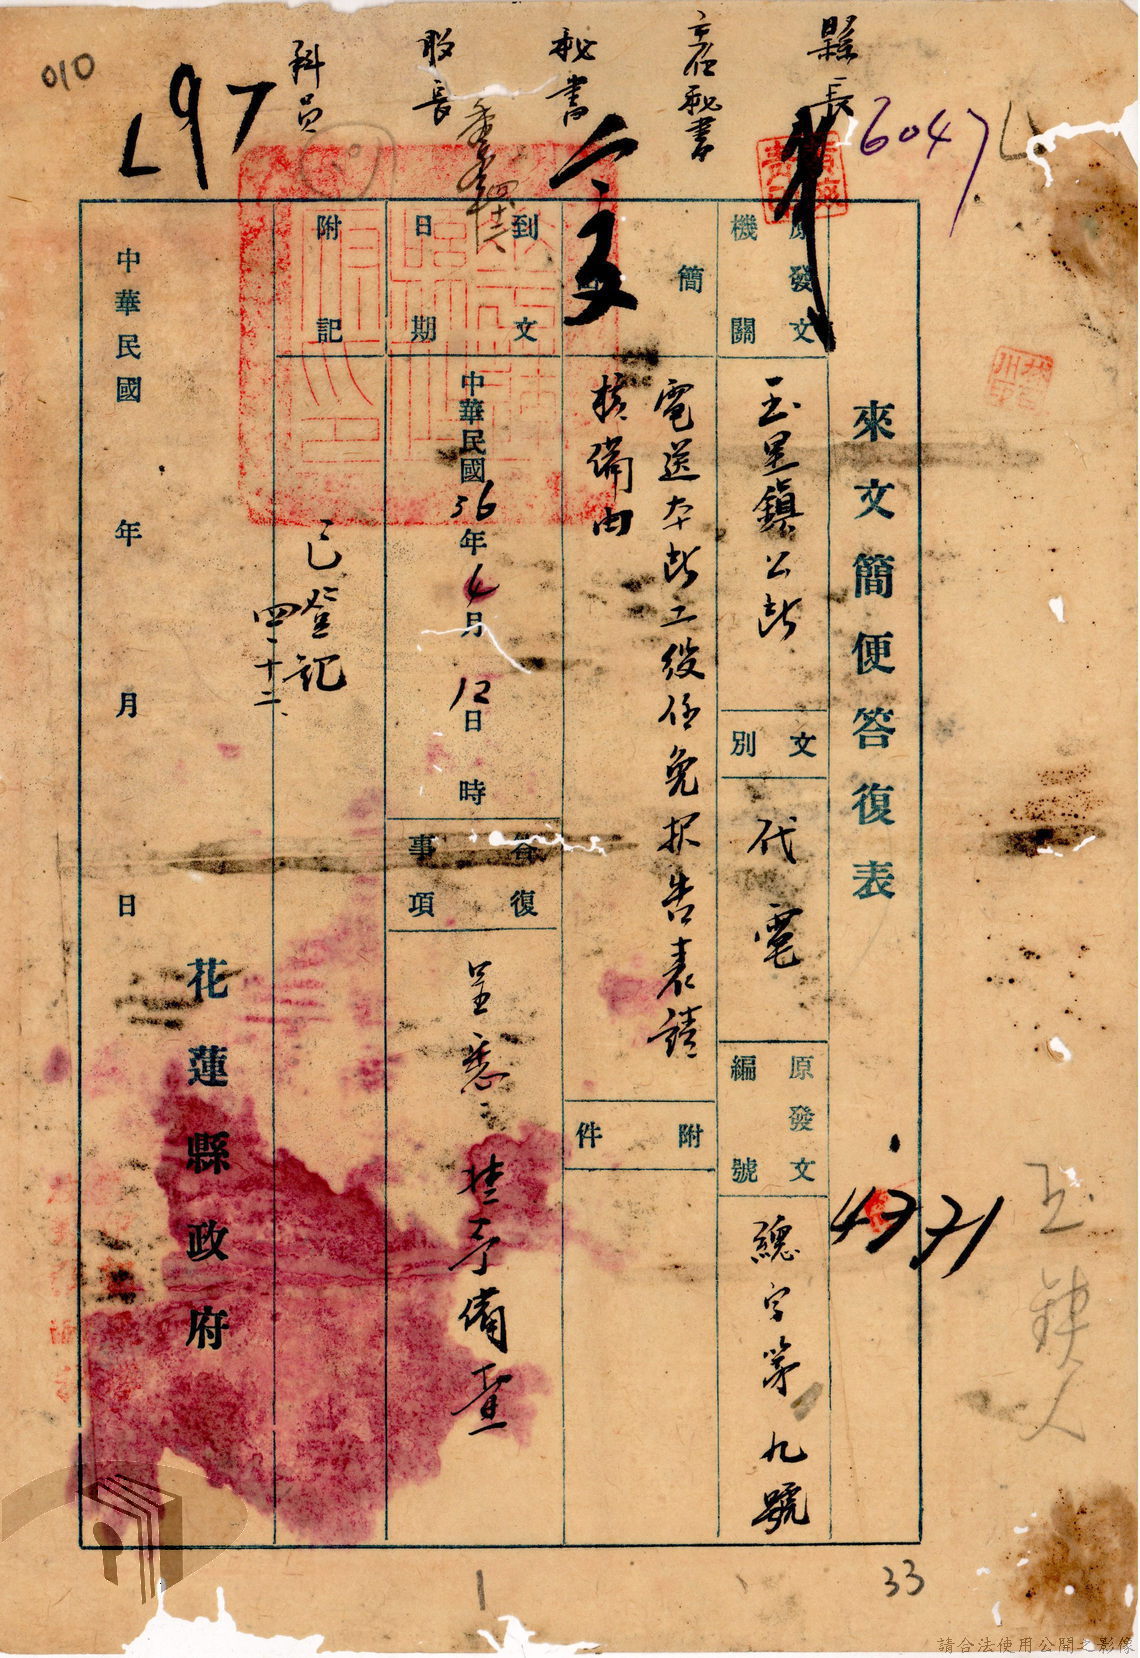 縣長
主任秘書
秘書
股長
科員
010
L97
6047
來文簡便答復表
4971
原發文機關
玉里鎮公所
文別
代電
原發文編號
總字第九號
簡
電送本所工役任免報告表請
核備由
附件
到文日期
中華民國36年4月12日 時
答復事項
呈悉
准予備查
附記
已登記
四、十二、
花蓮縣政府
中華民國 年 月 日
33
請合法使用公開之影像